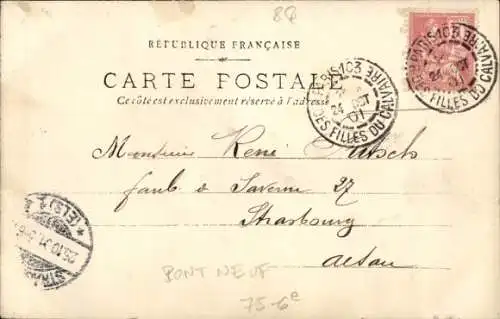 88
RÉPUBLIQUE FRANÇAISE
CARTE POSTALE
Ce côté est exclusivement réservé à l'adresse
PARIS 103
24 OCT 01
DES FILLES DU CALVAIRE
PARIS 103
24
01
FILLES DU CALVAIRE
Monsieur René
faub de Saverne 27
Strasbourg
Alsau
STRAS
(ELS)
25.10.01
PONT NEUF
75-6e